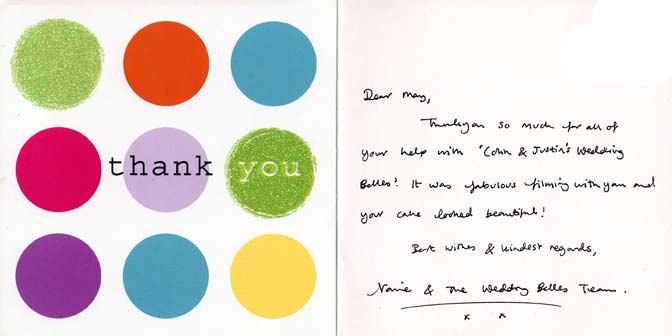 thank you
Dear May,
Thankyou so much for all of
your help with 'Colin & Justin's Wedding
Belles'. It was fabulous filming with you and
your cake looked beautiful!
Best wishes & kindest regards,
& The Wedding Belles Team.
x x